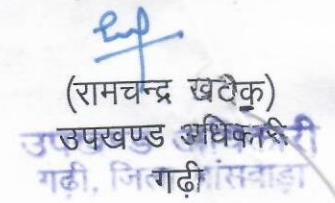 (रामचन्द्र खटीक)
उपखण्ड अधिकारी
गढ़ी
उपखण्ड अधिकारी
गढ़ी, जिला बांसवाड़ा